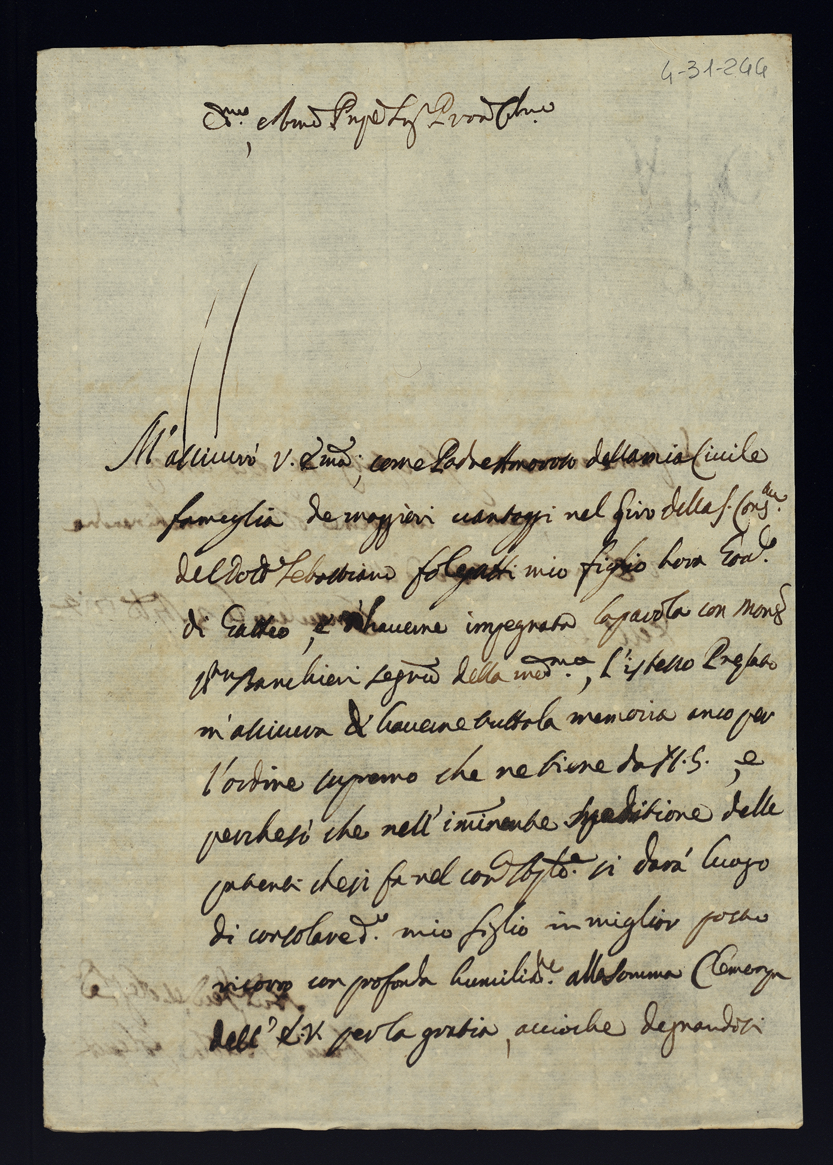 4-31-244
Em.mo e Rmo Prnpe Sig.r Pron Col.mo
M'assicurò V. Em.za, come Padre Amoroso della mia Civile
fameglia de maggiori vantaggi nel Giro della S. Cons.ta
del Dott.r Sebastiano folegatti mio figlio hora Gov.re
di Gatteo, e d'haverne impegnata la parola con Mons.r
Banchieri Segrio della med.ma, l'istesso Prelato
m'assicura d'haverne tutta la memoria anco per
l'ordine supremo che ne tiene da N.S., e
perche sò che nell'iminente Speditione delle
patenti che si fa nel cor.te si darà luogo
di consolare d.o mio figlio in miglior posto
ricorro con profonda humilità alla somma Clemenza
dell'E.V. per la gratia, accioche degnandosi